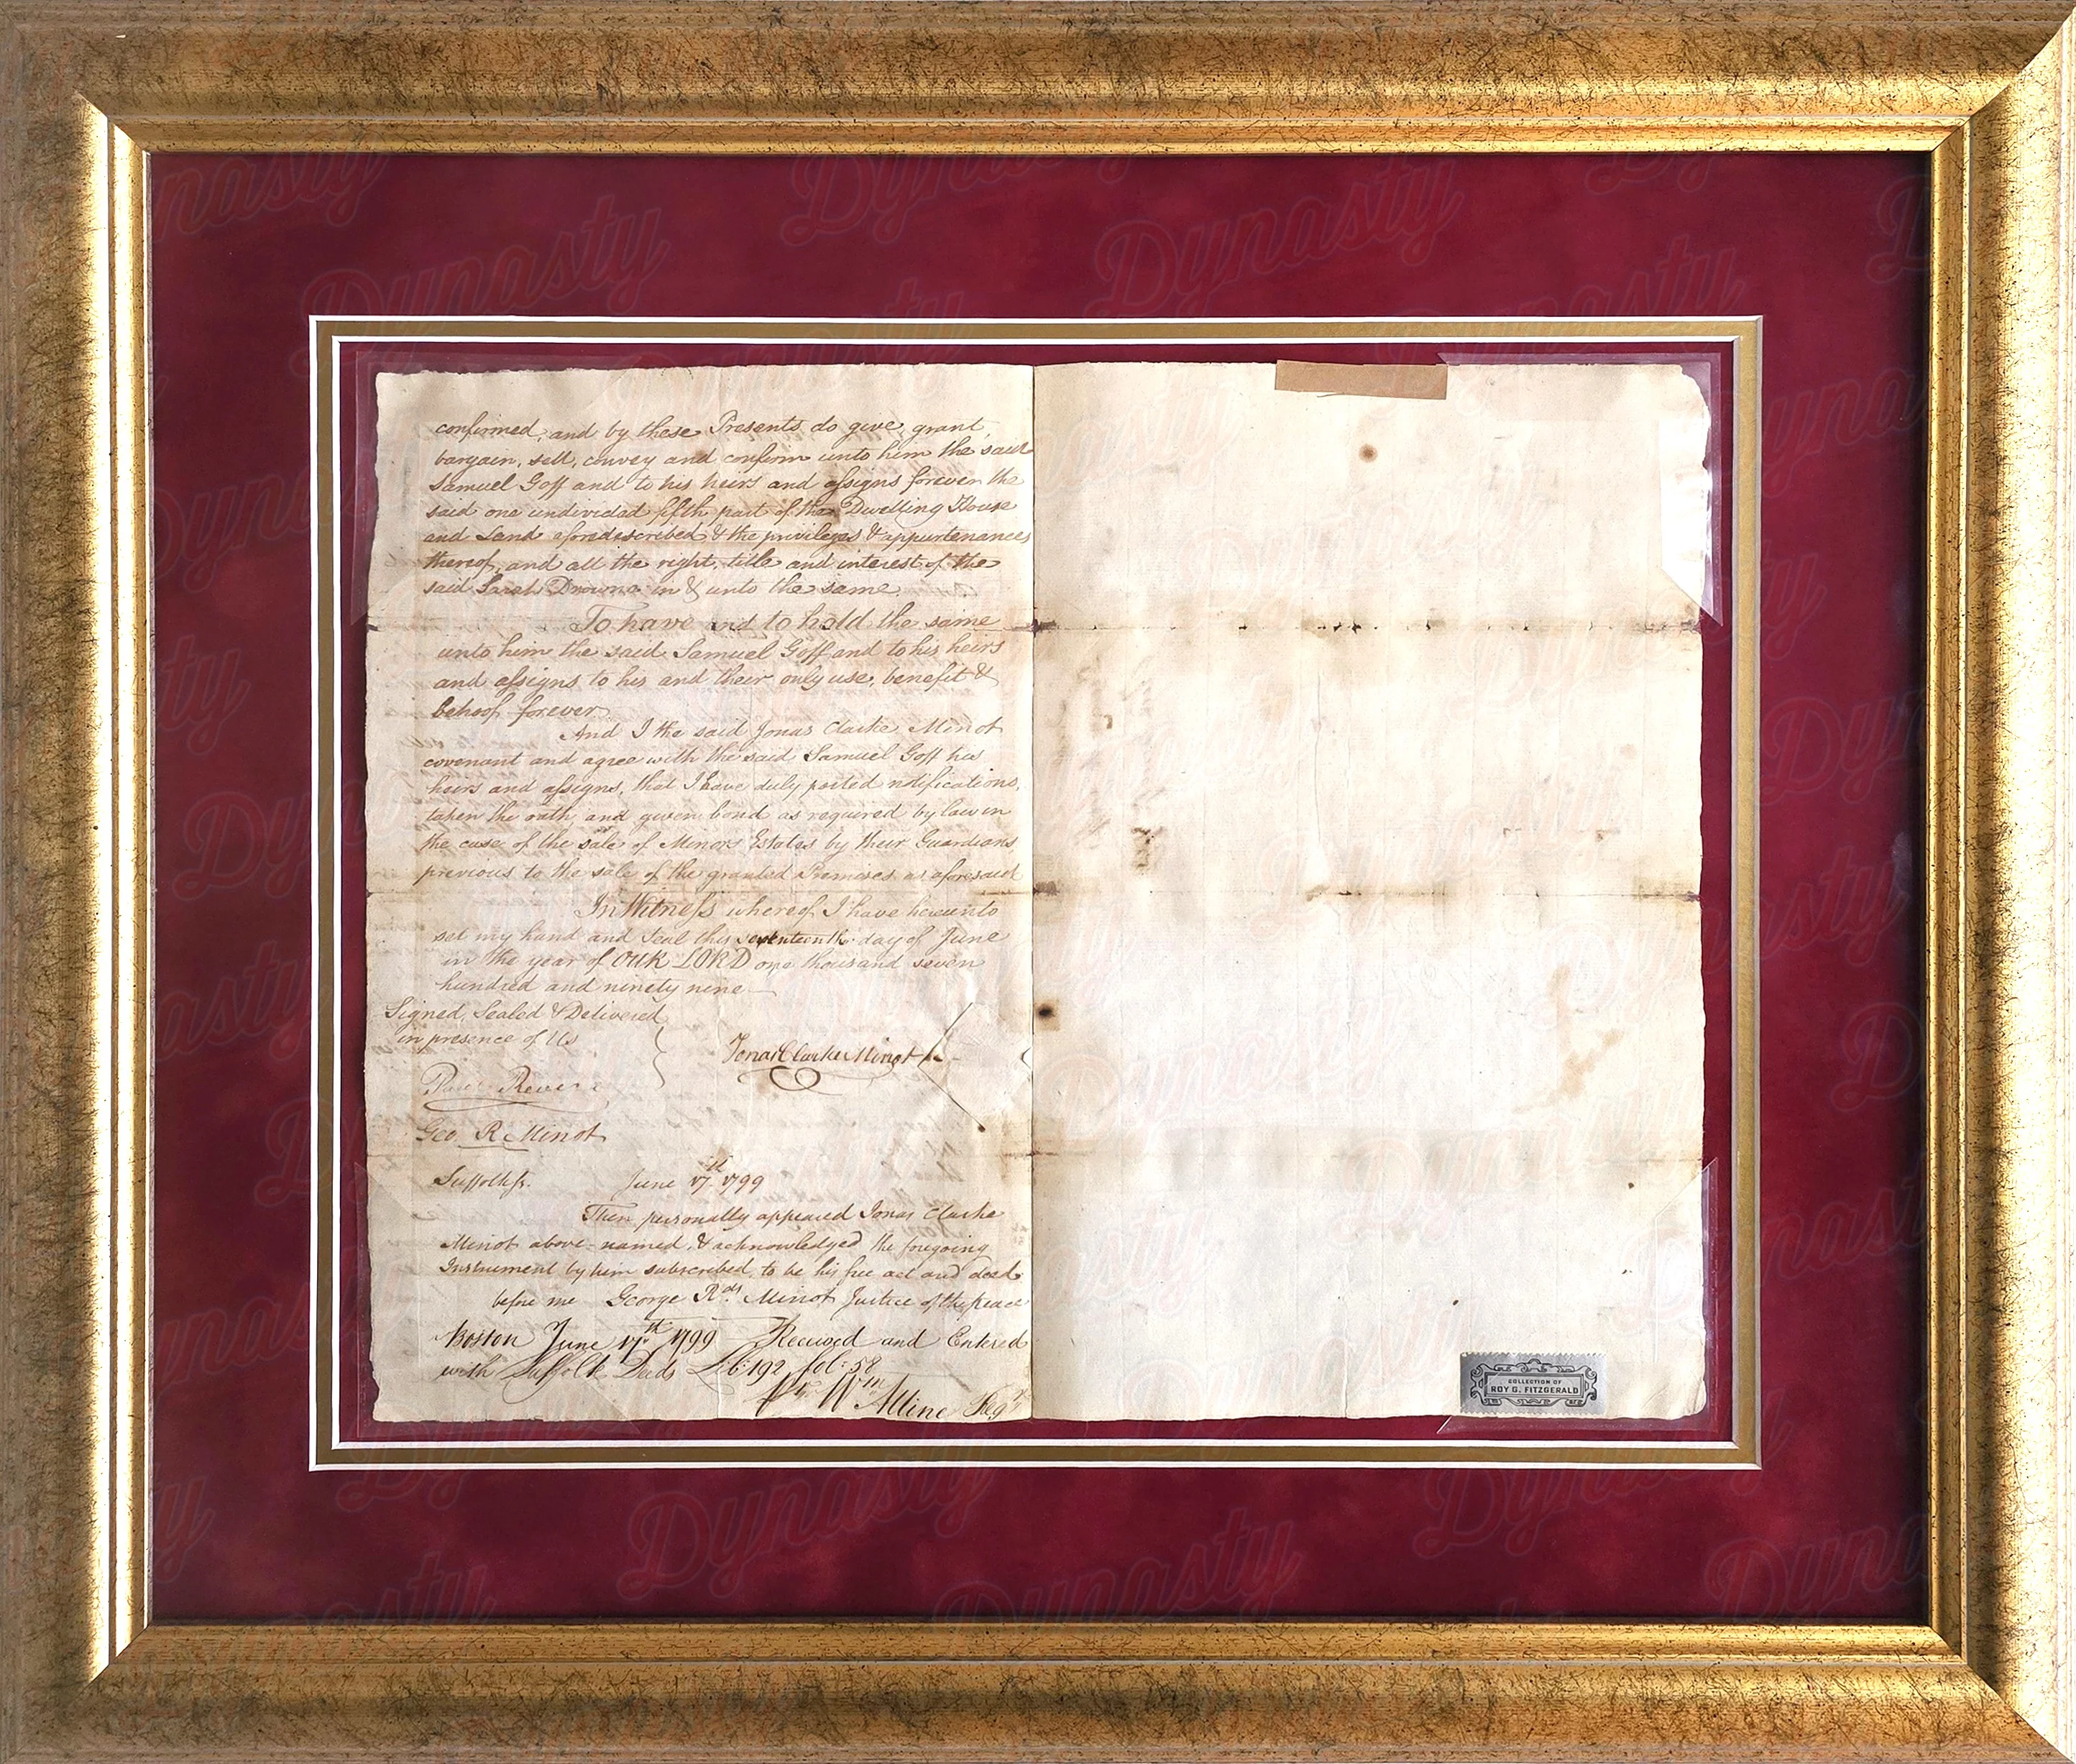 confirmed, and by these Presents do give, grant,
bargain, sell, convey and confirm unto him the said
Samuel Goff and to his heirs and assigns forever the
said one undivided fifth part of the Dwelling House
and Land aforedescribed & the privileges & appurtenances
thereof, and all the right, title and interest of the
said Sarah in & unto the same.
To have and to hold the same
unto him the said Samuel Goff and to his heirs
and assigns to his and their only use, benefit &
behoof forever.
And I the said Jonas Clarke Minot
covenant and agree with the said Samuel Goff his
heirs and assigns, that I have duly posted notifications,
taken the oath, and given bond as required by law in
the case of the sale of Minors Estates by their Guardians
previous to the sale of the granted Premises as aforesaid
In Witness whereof I have hereunto
set my hand and Seal this seventeenth day of June
in the year of OUR LORD one thousand seven
hundred and ninety nine
Signed, Sealed & Delivered
in presence of Us
Jonas Clarke Minot
Paul Revere
Geo. R. Minot
Suffolk ss. June 17th 1799
Then personally appeared Jonas Clarke
Minot above-named, & acknowledged the foregoing
Instrument by him subscribed, to be his free act and deed
before me George Rds Minot Justice of the peace
Boston June 17th 1799 Received and Entered
with Suffolk Deeds Lib: 192 fol: 58
Wm Alline Regr
COLLECTION OF
ROY G. FITZGERALD
Dynasty